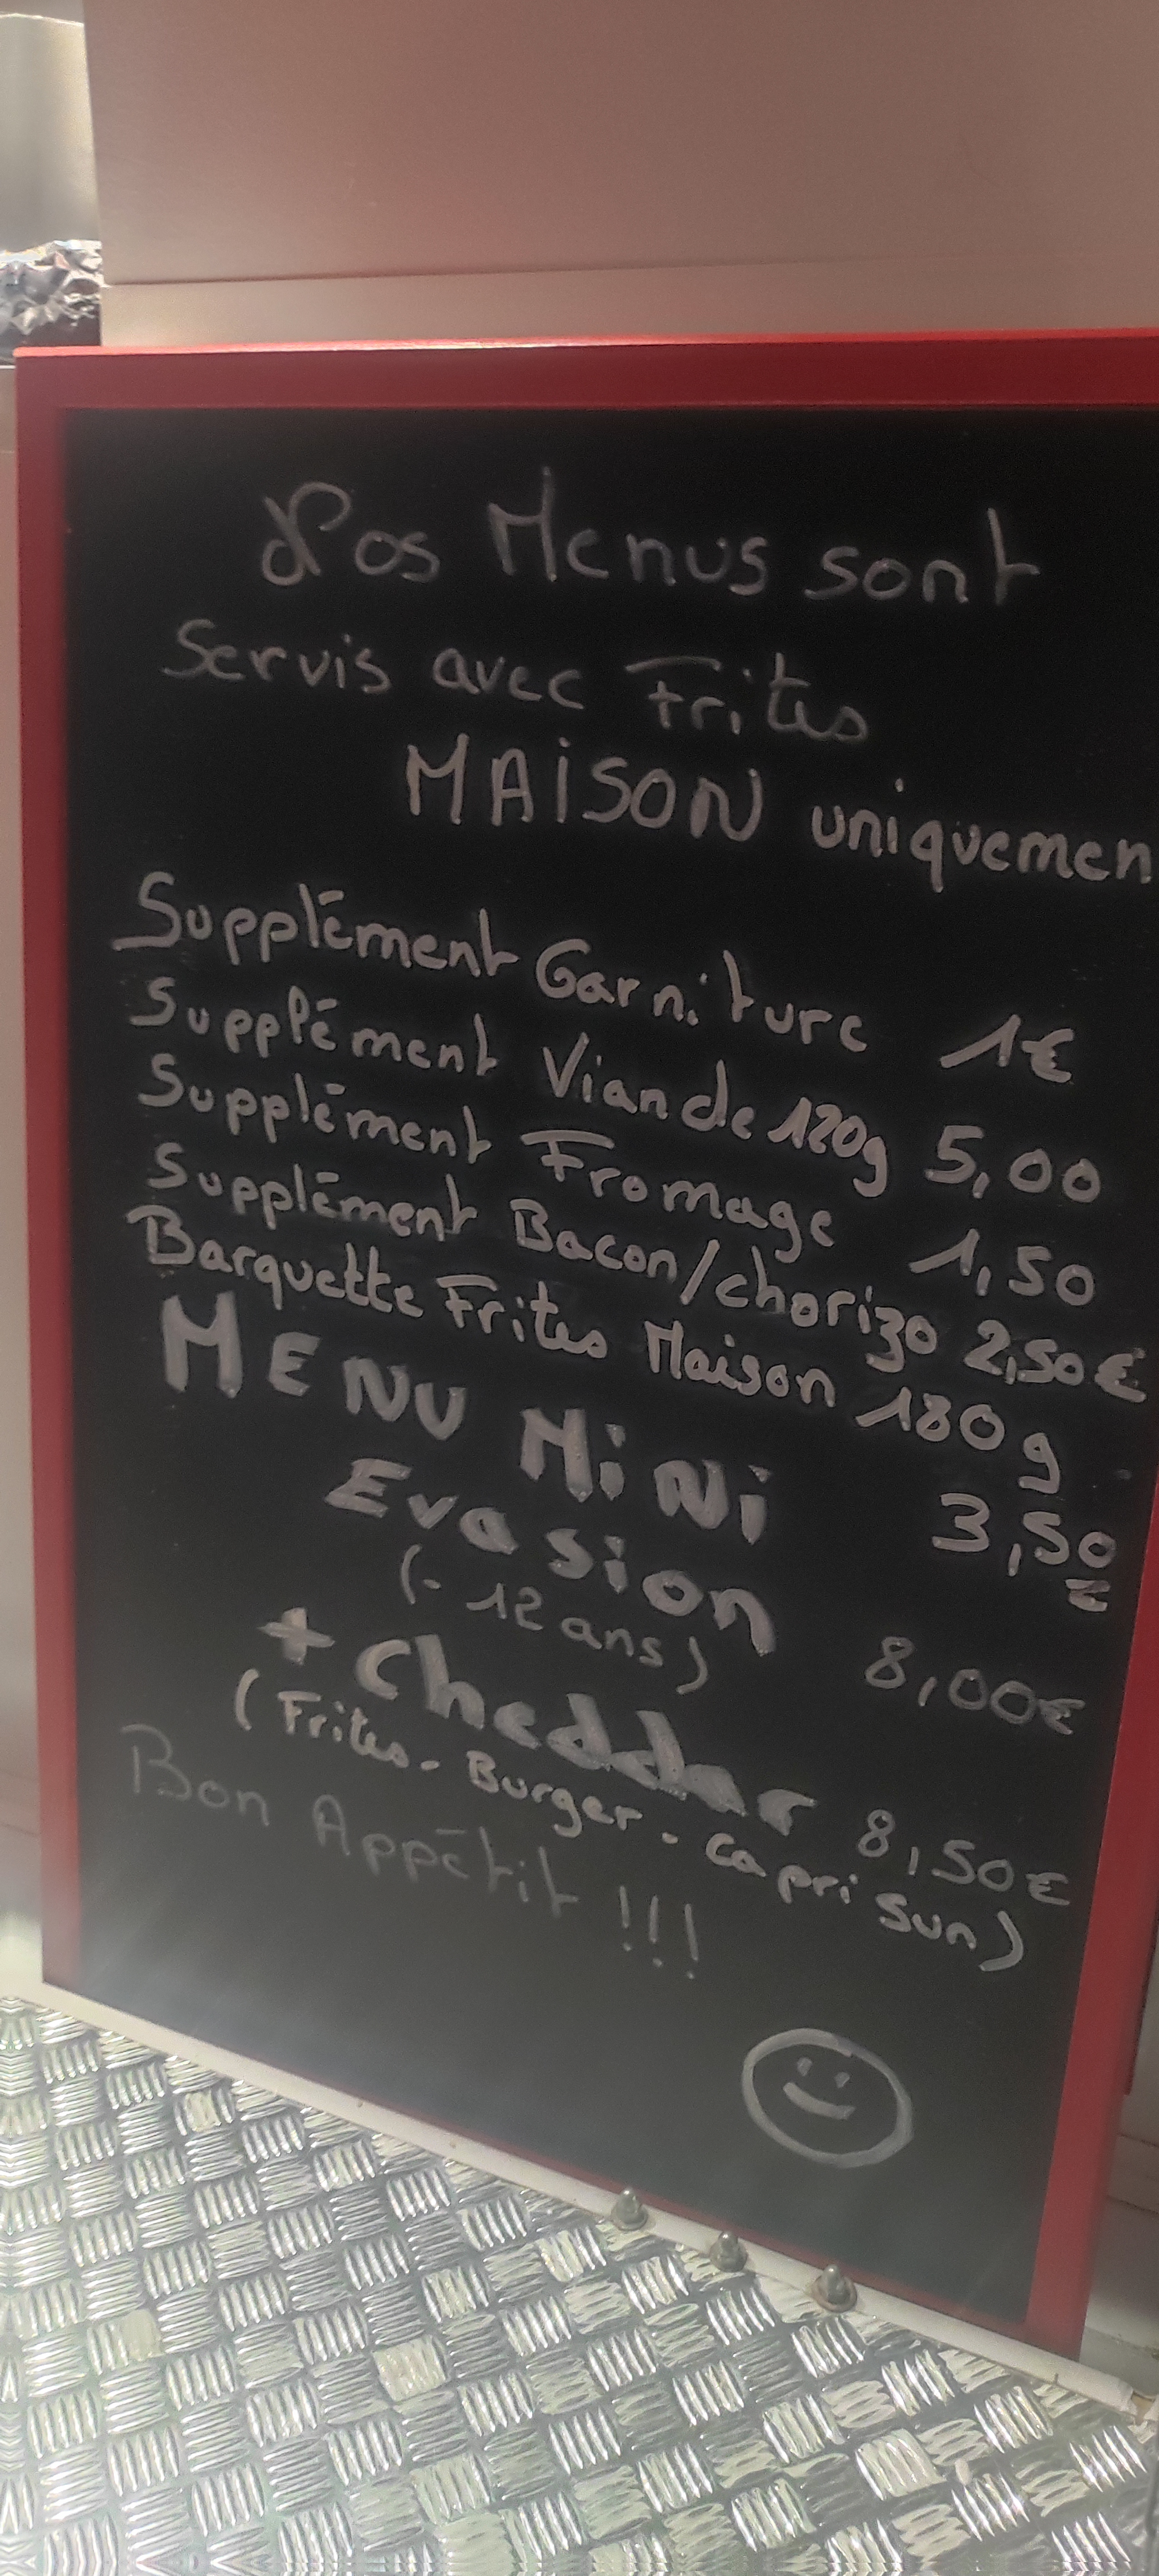 Nos Menus sont
Servis avec Frites
MAISON uniquemen
Supplément Garniture 1€
Supplément Viande 120g 5,00
Supplément Fromage 1,50
Supplément Bacon/chorizo 2,50€
Barquette Frites Maison 180g
3,50€
MENU MiNi
Evasion
(- 12 ans) 8,00€
+ Cheddar 8,50€
(Frites - Burger - Capri Sun)
Bon Appétit !!!